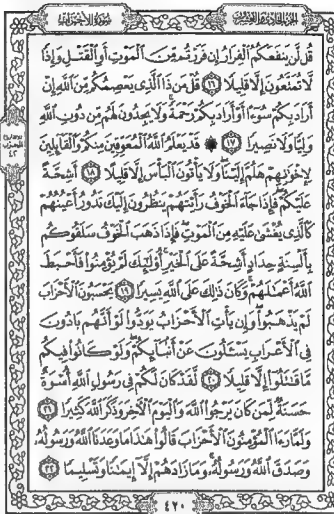 الجزء الحادي والعشرون
سورة الأحزاب
قُل لَّن يَنفَعَكُمُ ٱلْفِرَارُ إِن فَرَرْتُم مِّنَ ٱلْمَوْتِ أَوِ ٱلْقَتْلِ وَإِذًا
لَّا تُمَتَّعُونَ إِلَّا قَلِيلًا ١٦ قُلْ مَن ذَا ٱلَّذِى يَعْصِمُكُم مِّنَ ٱللَّهِ إِنْ
أَرَادَ بِكُمْ سُوٓءًا أَوْ أَرَادَ بِكُمْ رَحْمَةً وَلَا يَجِدُونَ لَهُم مِّن دُونِ ٱللَّهِ
وَلِيًّا وَلَا نَصِيرًا ١٧ ۞ قَدْ يَعْلَمُ ٱللَّهُ ٱلْمُعَوِّقِينَ مِنكُمْ وَٱلْقَآئِلِينَ
لِإِخْوَٰنِهِمْ هَلُمَّ إِلَيْنَا وَلَا يَأْتُونَ ٱلْبَأْسَ إِلَّا قَلِيلًا ١٨ أَشِحَّةً
عَلَيْكُمْ فَإِذَا جَآءَ ٱلْخَوْفُ رَأَيْتَهُمْ يَنظُرُونَ إِلَيْكَ تَدُورُ أَعْيُنُهُمْ
كَٱلَّذِى يُغْشَىٰ عَلَيْهِ مِنَ ٱلْمَوْتِ فَإِذَا ذَهَبَ ٱلْخَوْفُ سَلَقُوكُم
بِأَلْسِنَةٍ حِدَادٍ أَشِحَّةً عَلَى ٱلْخَيْرِ أُو۟لَٰٓئِكَ لَمْ يُؤْمِنُوا۟ فَأَحْبَطَ
ٱللَّهُ أَعْمَٰلَهُمْ وَكَانَ ذَٰلِكَ عَلَى ٱللَّهِ يَسِيرًا ١٩ يَحْسَبُونَ ٱلْأَحْزَابَ
لَمْ يَذْهَبُوا۟ وَإِن يَأْتِ ٱلْأَحْزَابُ يَوَدُّوا۟ لَوْ أَنَّهُم بَادُونَ
فِى ٱلْأَعْرَابِ يَسْـَٔلُونَ عَنْ أَنۢبَآئِكُمْ وَلَوْ كَانُوا۟ فِيكُم
مَّا قَٰتَلُوٓا۟ إِلَّا قَلِيلًا ٢٠ لَّقَدْ كَانَ لَكُمْ فِى رَسُولِ ٱللَّهِ أُسْوَةٌ
حَسَنَةٌ لِّمَن كَانَ يَرْجُوا۟ ٱللَّهَ وَٱلْيَوْمَ ٱلْءَاخِرَ وَذَكَرَ ٱللَّهَ كَثِيرًا ٢١
وَلَمَّا رَءَا ٱلْمُؤْمِنُونَ ٱلْأَحْزَابَ قَالُوا۟ هَٰذَا مَا وَعَدَنَا ٱللَّهُ وَرَسُولُهُۥ
وَصَدَقَ ٱللَّهُ وَرَسُولُهُۥ وَمَا زَادَهُمْ إِلَّآ إِيمَٰنًا وَتَسْلِيمًا ٢٢
٤٢٠